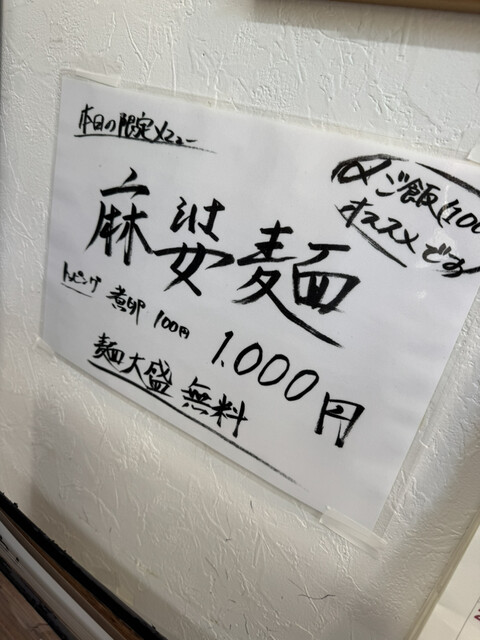 本日の限定メニュー
麻婆麺
トッピング 煮卵 100円
1.000円
麺大盛 無料
〆ご飯(100
オススメです